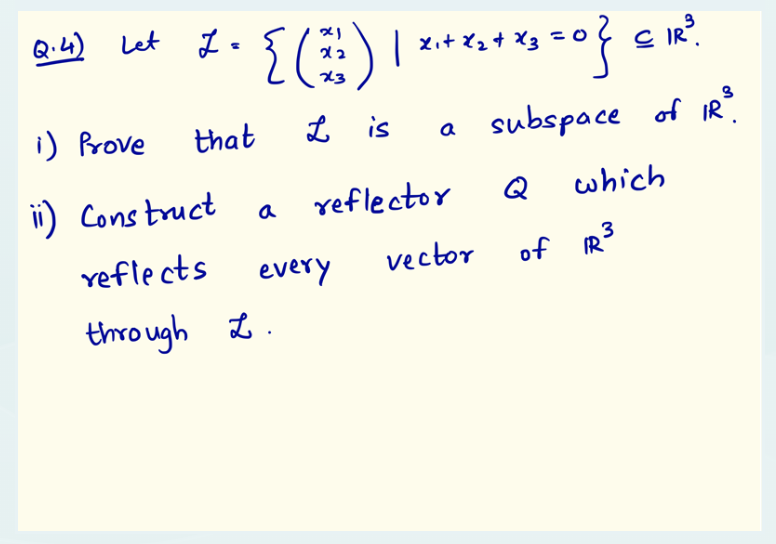 Q.4) Let ℒ = { (x1 x2 x3) | x1 + x2 + x3 = 0 } ⊆ ℝ³.
i) Prove that ℒ is a subspace of ℝ³.
ii) Construct a reflector Q which
reflects every vector of ℝ³
through ℒ.